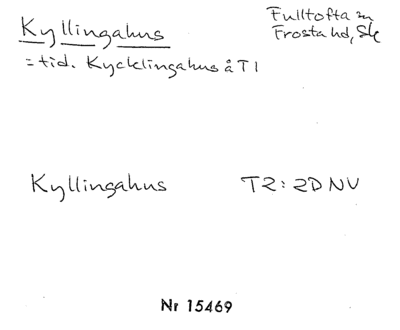 Kyllingahus
Fulltofta sn
Frosta hd, Sk
= tid. Kycklingahus å T1
Kyllingahus T2: 2D NV
Nr 15469